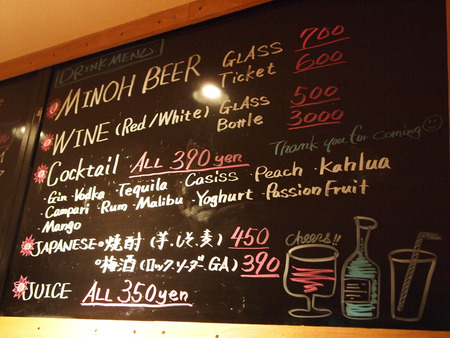 DRINK MENU
MINOH BEER GLASS 700
Ticket 600
WINE (Red/White) GLASS 500
Bottle 3000
Thank you for coming
Cocktail ALL 390 yen
・Gin・Vodka・Tequila Casiss・Peach・Kahlua
・Campari・Rum・Malibu・Yoghurt・Passion Fruit
Mango
JAPANESE・焼酎(芋.しそ.麦) 450
・梅酒(ロック.ソーダ.GA) 390
Cheers!!
JUICE ALL 350yen